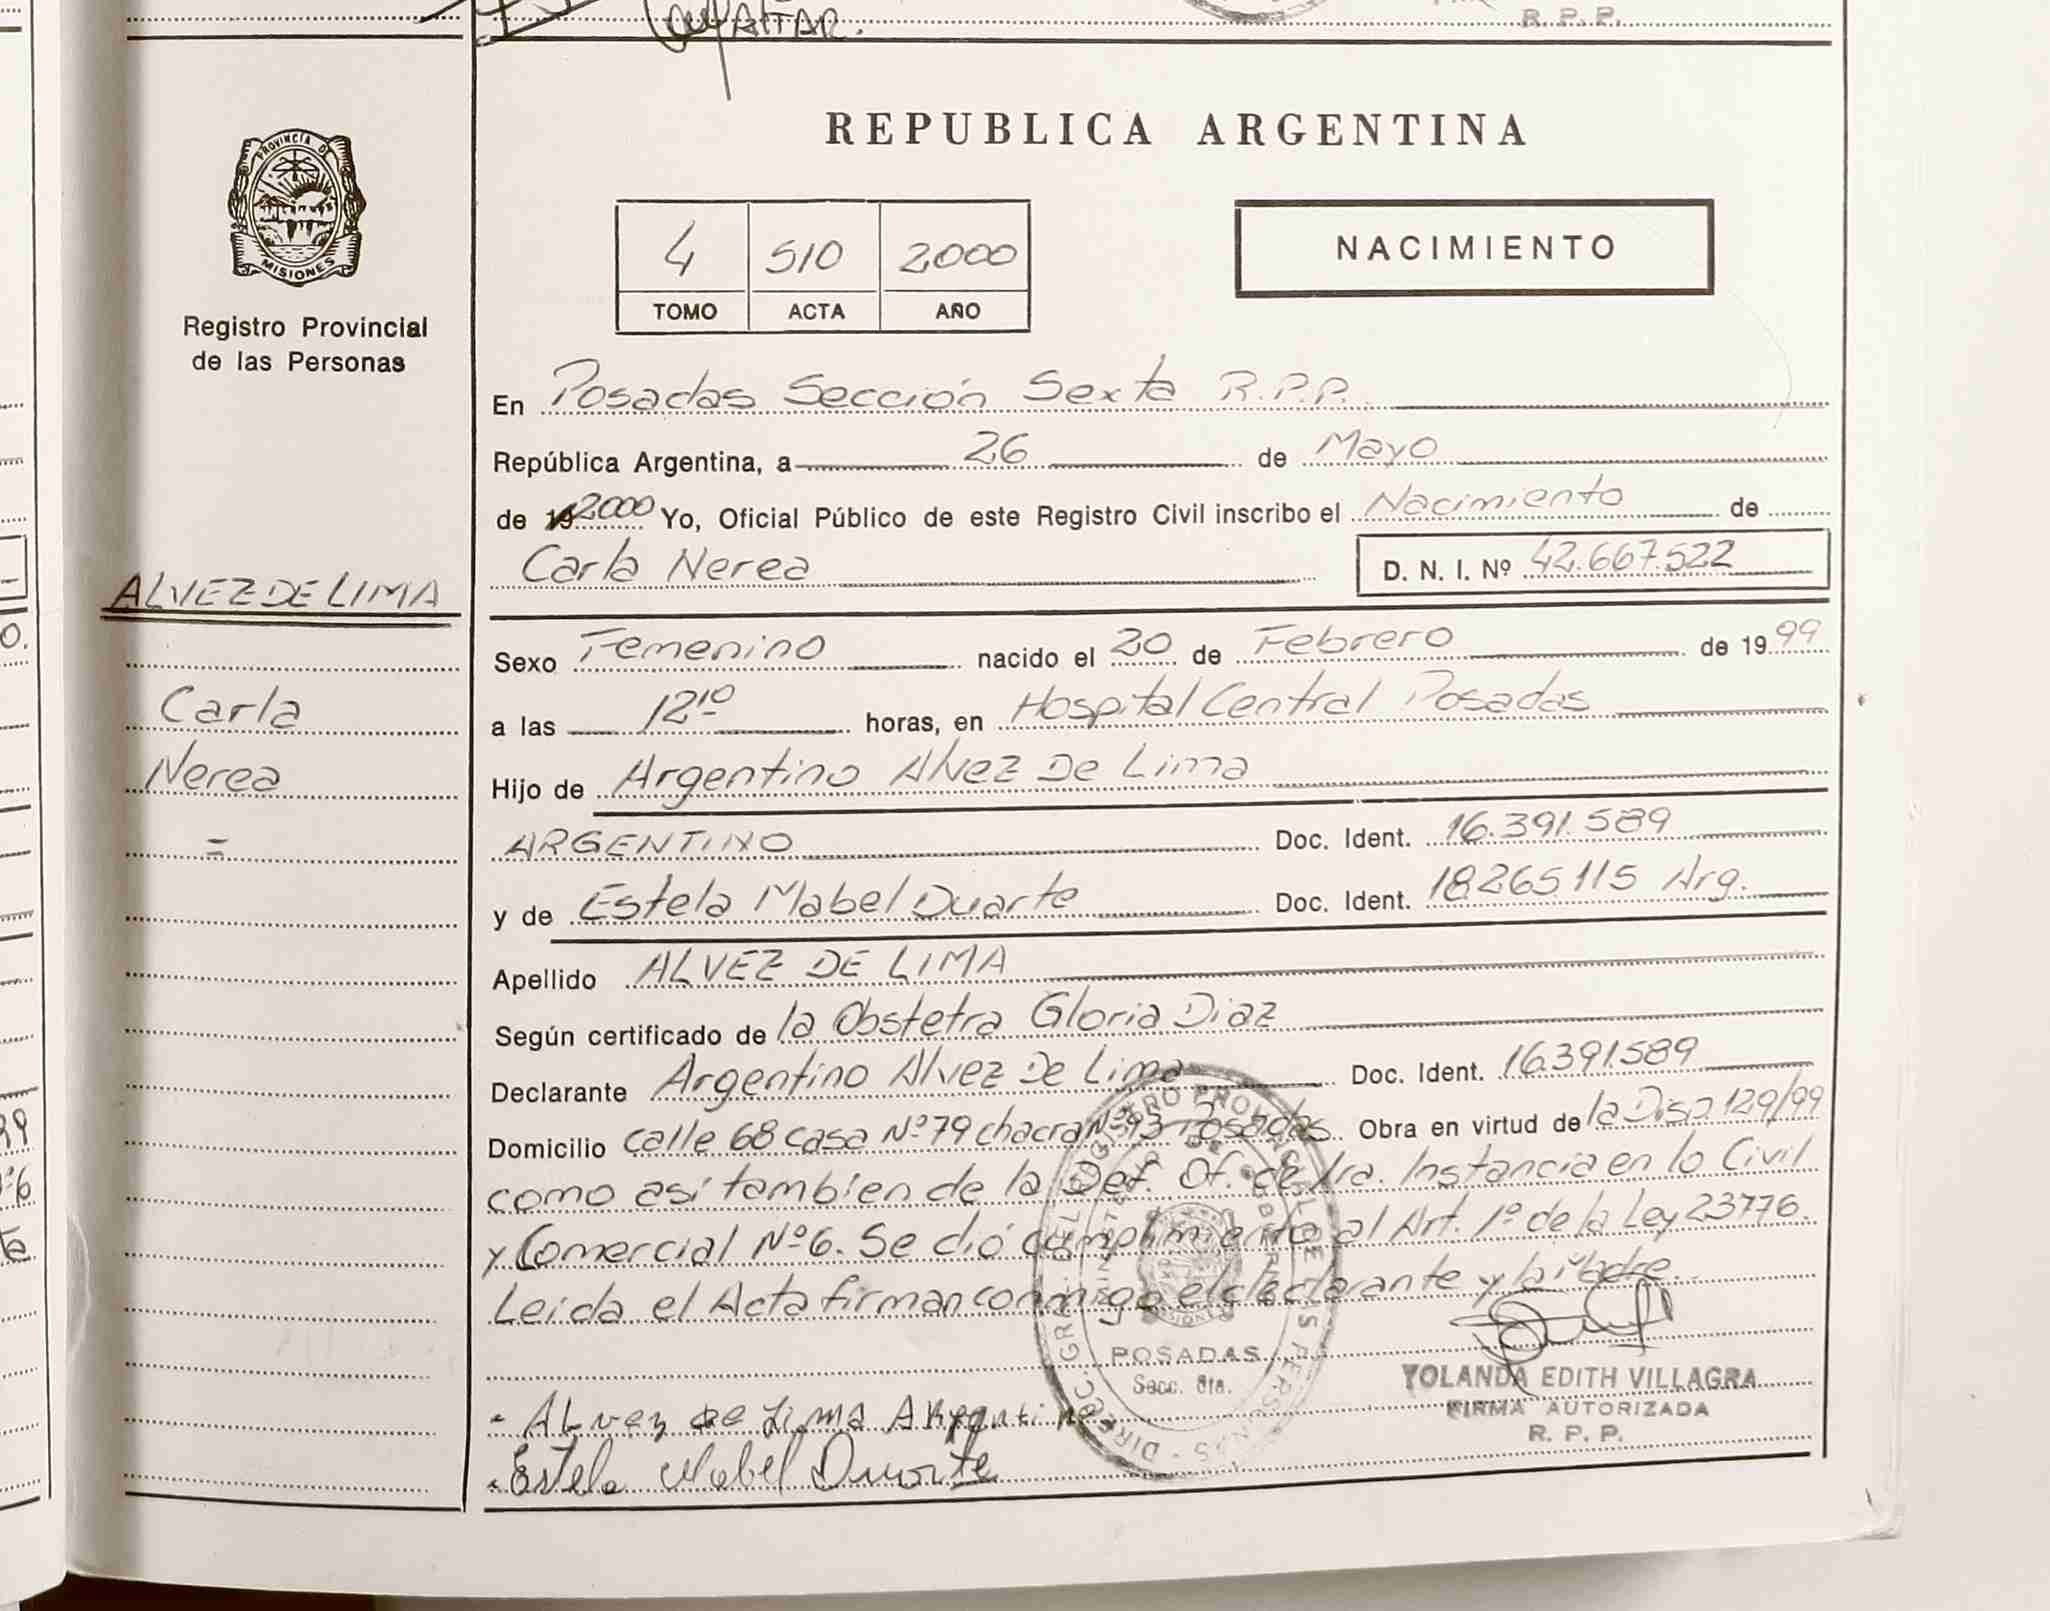 R. P. P.
REPUBLICA ARGENTINA
PROVINCIA DE
MISIONES
Registro Provincial
de las Personas
4 510 2000
TOMO ACTA AÑO
NACIMIENTO
En Posadas Sección Sexta R.P.P.
República Argentina, a 26 de Mayo
de 19 2000 Yo, Oficial Público de este Registro Civil inscribo el Nacimiento de
Carla Nerea D. N. I. Nº 42.667.522
ALVEZ DE LIMA
Carla
Nerea
=
Sexo Femenino nacido el 20 de Febrero de 1999
a las 12¹⁰ horas, en Hospital Central Posadas
Hijo de Argentino Alvez De Lima
ARGENTINO Doc. Ident. 16.391.589
y de Estela Mabel Duarte Doc. Ident. 18.265115 Arg.
Apellido ALVEZ DE LIMA
Según certificado de la Obstetra Gloria Diaz
Declarante Argentino Alvez De Lima Doc. Ident. 16.391.589
Domicilio calle 68 casa Nº 79 chacra Nº 93 Posadas. Obra en virtud de la Disp 129/99
como asi tambien de la Def. Of. de 1ra. Instancia en lo Civil
y Comercial Nº 6. Se dió cumplimiento al Art. 1º de la Ley 23776.
Leida el Acta firman conmigo el declarante y la Madre.
POSADAS
Secc. 6ta.
YOLANDA EDITH VILLAGRA
FIRMA AUTORIZADA
R. P. P.
- Alvez de Lima Argentino
- Estela Mabel Duarte